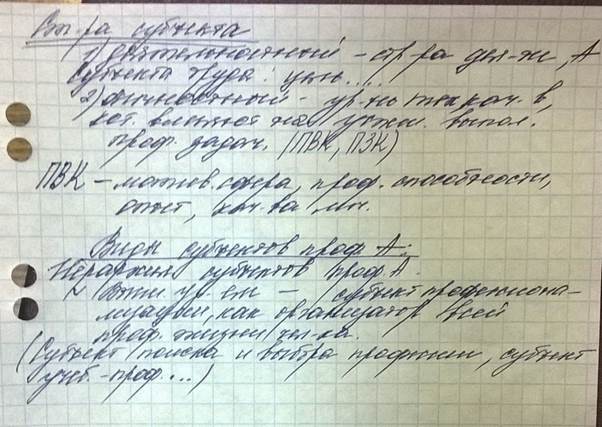 субъекта
1) деятельностный – стр-ра деят-ти, А
субъекта труда: цель....
2) личностный –
проф. задач. (ПВК, ПЗК)
ПВК – мотив. сфера, проф. способности,
опыт, кач-ва лич.
Виды субъектов проф. А:
Иерархия субъектов проф. А.
субъект профессиона-
лизации как организатор всей
проф. жизни чел-ка.
(Субъект поиска и выбора профессии, субъект
учеб.-проф....)